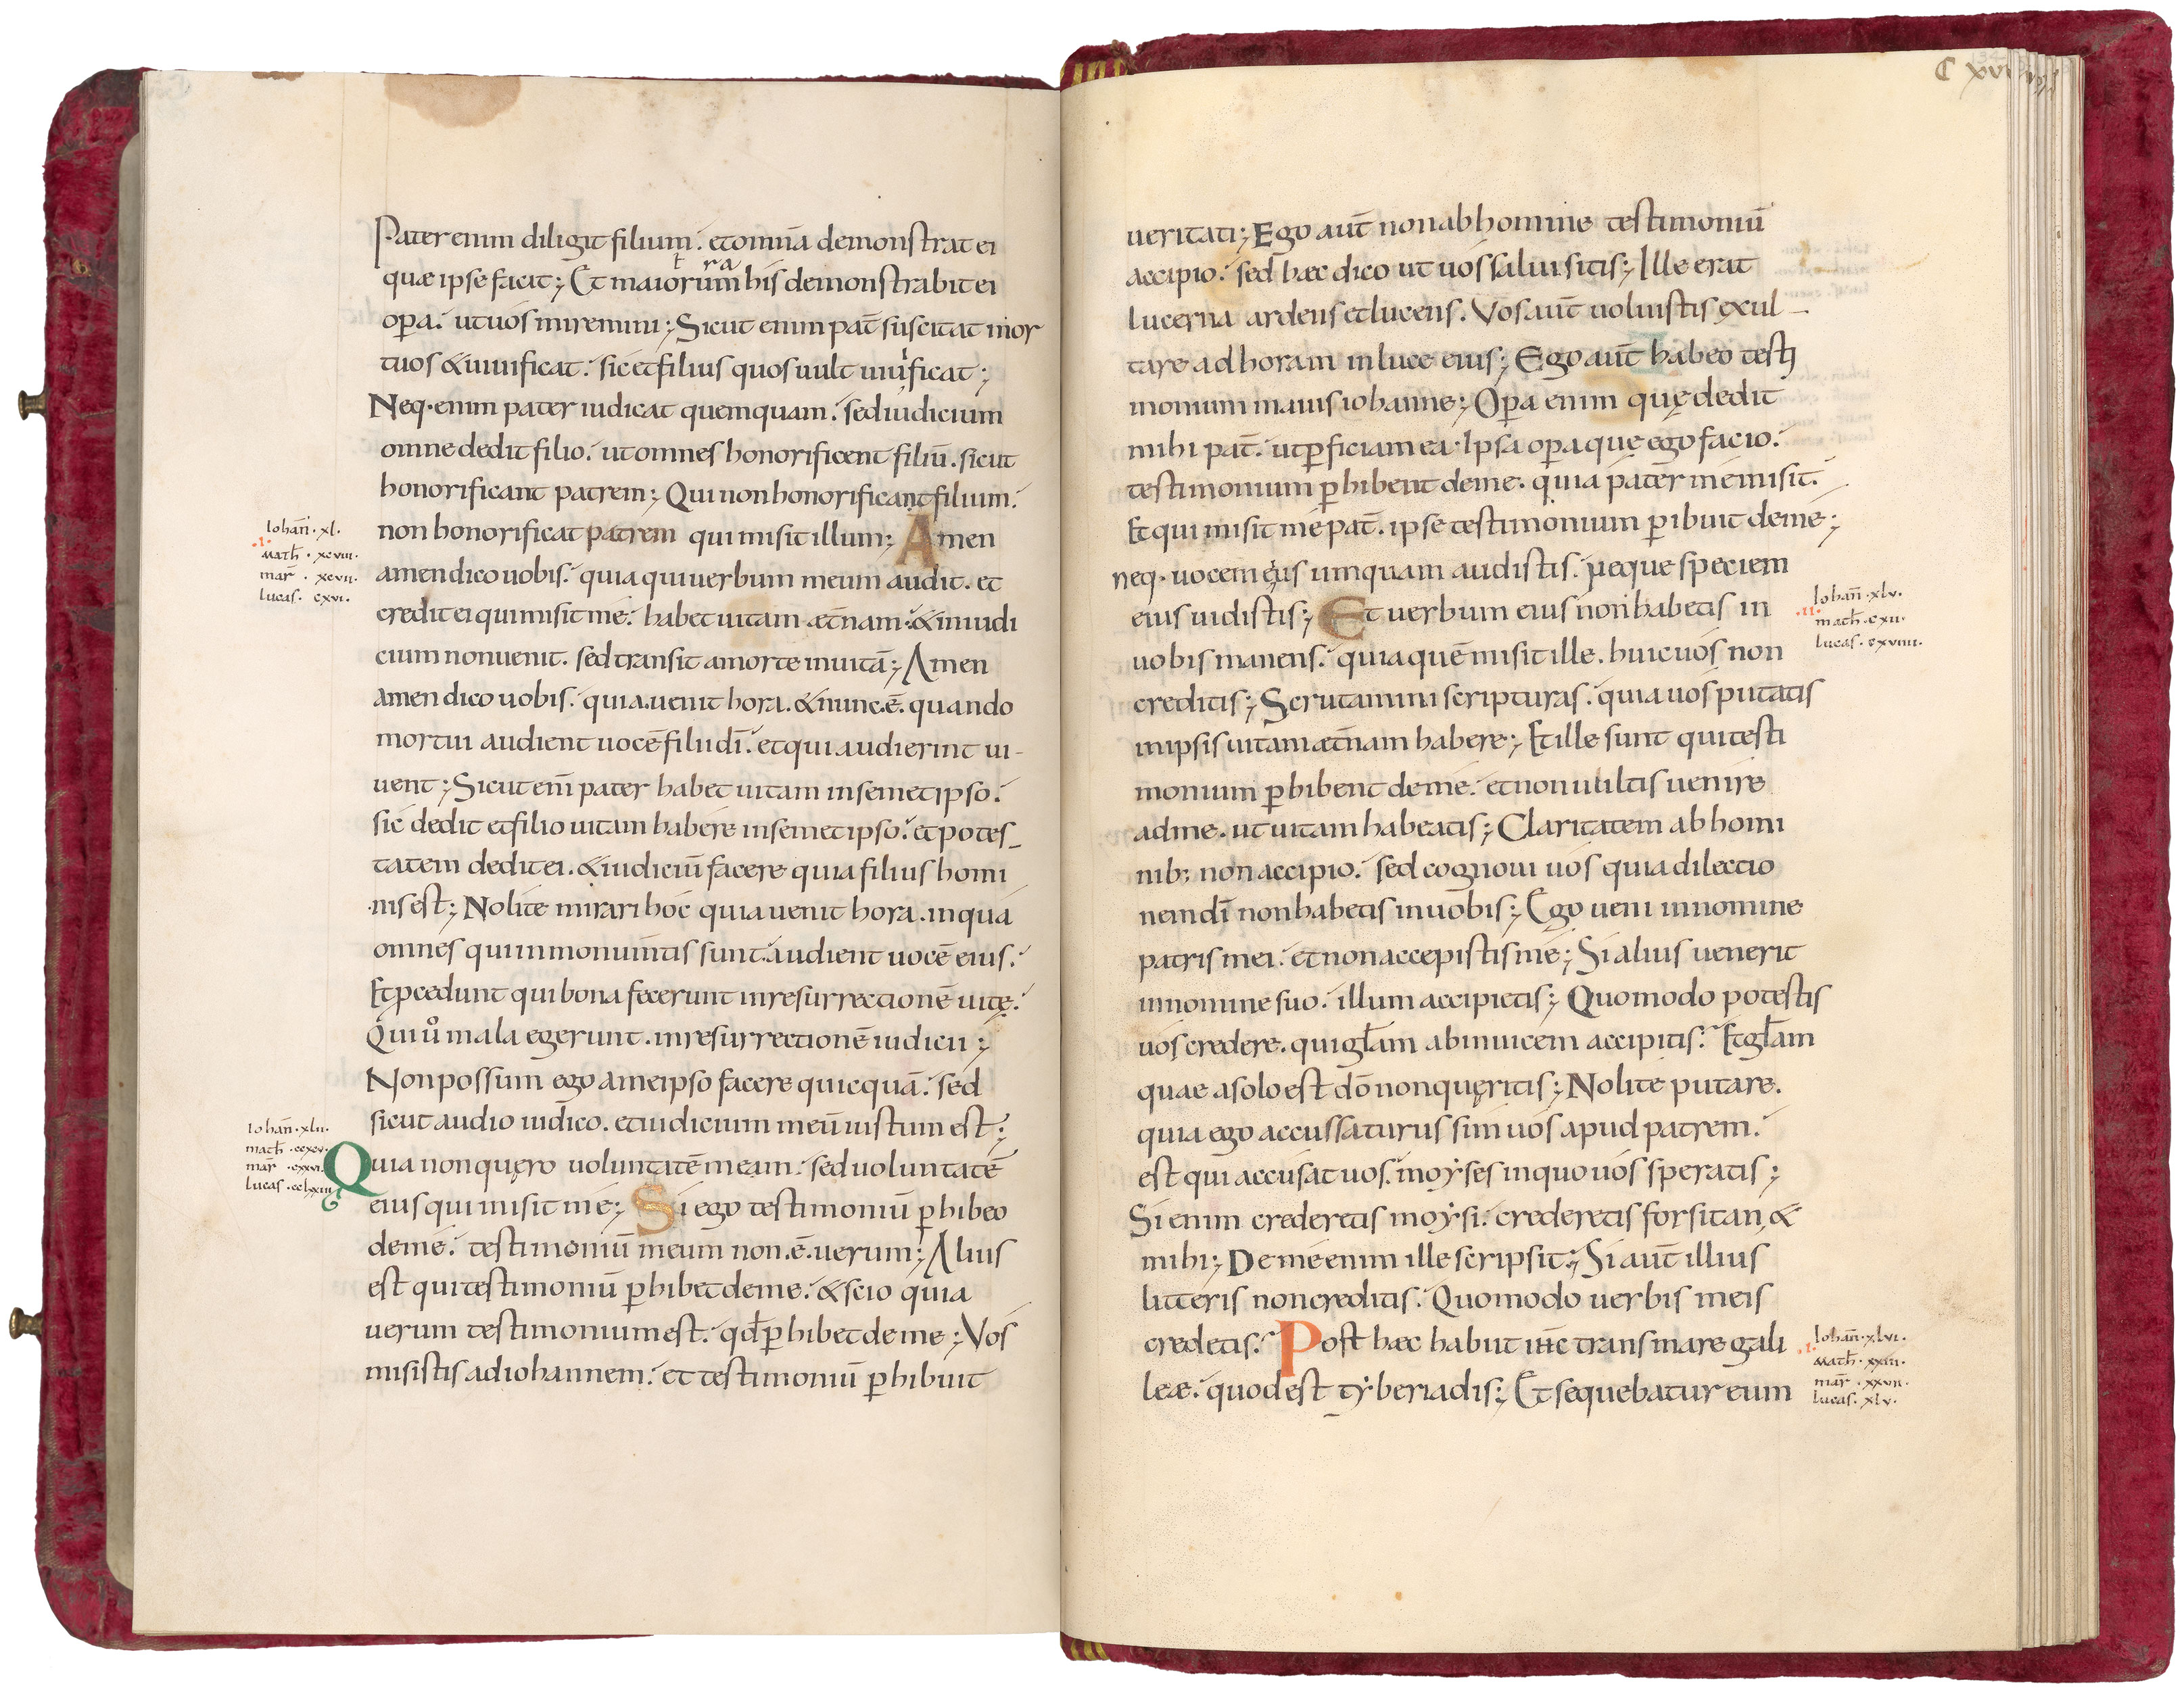 Pater enim diligit filium. et omnia demonstrat ei
t ra
quæ ipse facit; Et maiorum his demonstrabit ei
opa. ut uos miremini; Sicut enim pat̄ suscitat mor
tuos & uiuificat. sic et filius quos uult uiuificat;
Neq. enim pater iudicat quemquam. sed iudicium
omne dedit filio. ut omnes honorificent filiū. sicut
honorificant patrem; Qui non honorificant filium.
non honorificat patrem qui misit illum; Amen
amen dico uobis. quia qui uerbum meum audit. et
credit ei qui misit me. habet uitam æt̄nam. & in iudi
cium non uenit. sed transit a morte in uitā; Amen
amen dico uobis. quia uenit hora. & nunc .ē. quando
mortui audient uocē filii dī. et qui audierint ui-
uent; Sicut eni̅ pater habet uitam in semetipso.
sic dedit et filio uitam habere in semetipso. et potes-
tatem dedit ei. & iudiciū facere quia filius homi
nis est; Nolite mirari hoc quia uenit hora. in qua
omnes qui in monum̄tis sunt. audient uocē eius.
Et pcedunt qui bona fecerunt in resurrectionē uitę.
Qui uͦ mala egerunt. in resurrectionē iudicii;
Non possum ego a meipso facere quicquā. sed
sicut audio iudico. et iudicium meū iustum est;
Quia non quęro uoluntatē meam. sed uoluntatē
eius qui misit me; Si ego testimoniū phibeo
de me. testimoniū meum non .ē. uerum; Alius
est qui testimoniū phibet de me. & scio quia
uerum testimonium est. qd̄ phibet de me; Vos
misistis ad iohannem. et testimoniū phibuit
Iohan̄. xl.
.I.
Math̄. xcviii.
mar̄. xcvii.
lucas. cxvi.
Iohan̄. xlii.
math̄. ccxcv.
mar̄. cxxvi.
lucas. cclxxiii
C xvi
ueritati; Ego aut̄ non ab homine testimoniū
accipio. sed hæc dico ut uos salui sitis; Ille erat
lucerna ardens et lucens. Vos aut̄ uoluistis exul-
tare ad horam in luce eius; Ego aut̄ habeo testi
monium maius iohanne; Opa enim quę dedit
mihi pat̄. ut pficiam ea. Ipsa opa quę ego facio.
testimonium phibent de me. quia pater me misit.
Et qui misit me pat̄. ipse testimonium pibuit de me;
neq. uocem eius umquam audistis. neque speciem
eius uidistis; Et uerbum eius non habetis in
uobis manens. quia quē misit ille. huic uos non
creditis; Scrutamini scripturas. quia uos putatis
in ipsis uitam æt̄nam habere; Et ille sunt qui testi
monium phibent de me. et non uultis uenire
ad me. ut uitam habeatis; Claritatem ab homi
nib; non accipio. sed cognoui uos quia dilectio
nem dī non habetis in uobis; Ego ueni in nomine
patris mei. et non accepistis me; Si alius uenerit
in nomine suo. illum accipietis; Quomodo potestis
uos credere. qui gl̄am ab inuicem accipitis. Et gl̄am
quae a solo est dō non quęritis; Nolite putare.
quia ego accussaturus sim uos apud patrem.
est qui accusat uos. moyses in quo uos speratis;
Si enim crederetis moysi. crederetis forsitan &
mihi; De me enim ille scripsit; Si aut̄ illius
litteris non creditis. Quomodo uerbis meis
credetis. Post hæc habiit ih̄c trans mare gali
leæ. quod est tyberiadis; Et sequebatur eum
Iohan̄. xlv.
.II.
math̄. cxii.
lucas. cxviiii.
Iohan̄. xlvi.
.I.
Math̄. xxiii.
mar̄. xxvii.
lucas. xlv.